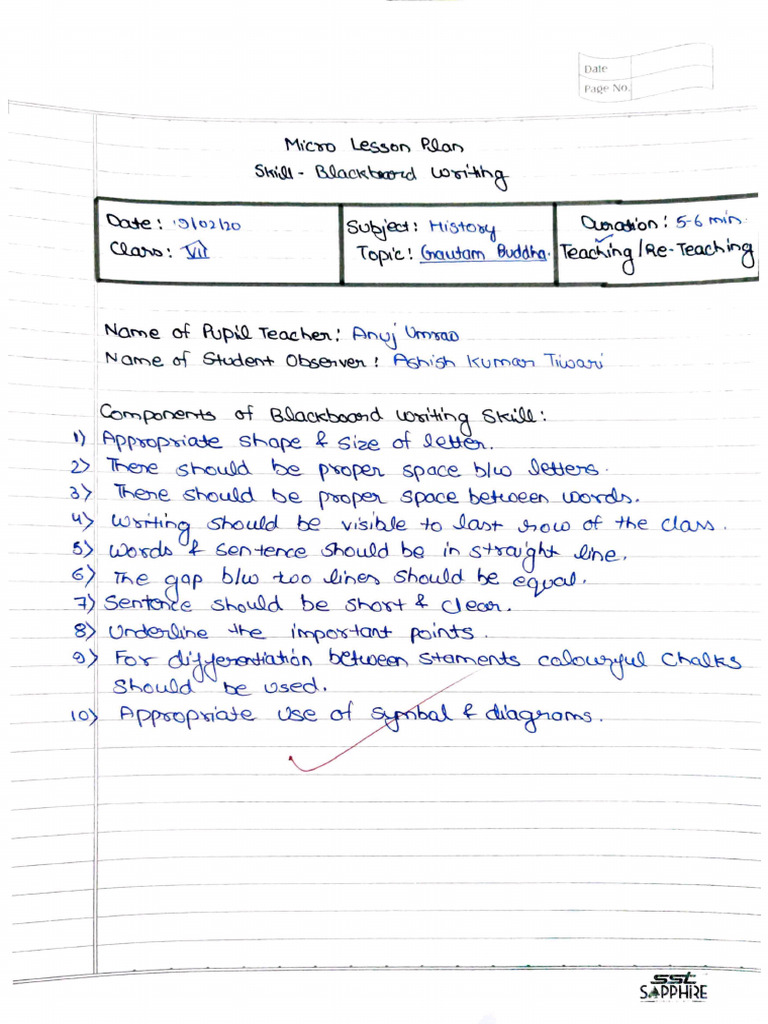 Date
Page No.
Micro Lesson Plan
Skill - Blackboard Writing
Date: 19/02/20
Subject: History
Duration: 5-6 min.
Class: VII
Topic: Gautam Buddha.
Teaching/Re-Teaching
Name of Pupil Teacher: Anuj Umrao
Name of Student Observer: Ashish Kumar Tiwari
Components of Blackboard Writing Skill:
1) Appropriate shape & size of letter.
2) There should be proper space b/w letters.
3) There should be proper space between words.
4) Writing should be visible to last row of the class.
5) Words & sentence should be in straight line.
6) The gap b/w too lines should be equal.
7) Sentence should be short & clear.
8) Underline the important points.
9) For differentiation between staments colourful chalks
should be used.
10) Appropriate use of symbal & diagrams.
sst
SAPPHIRE